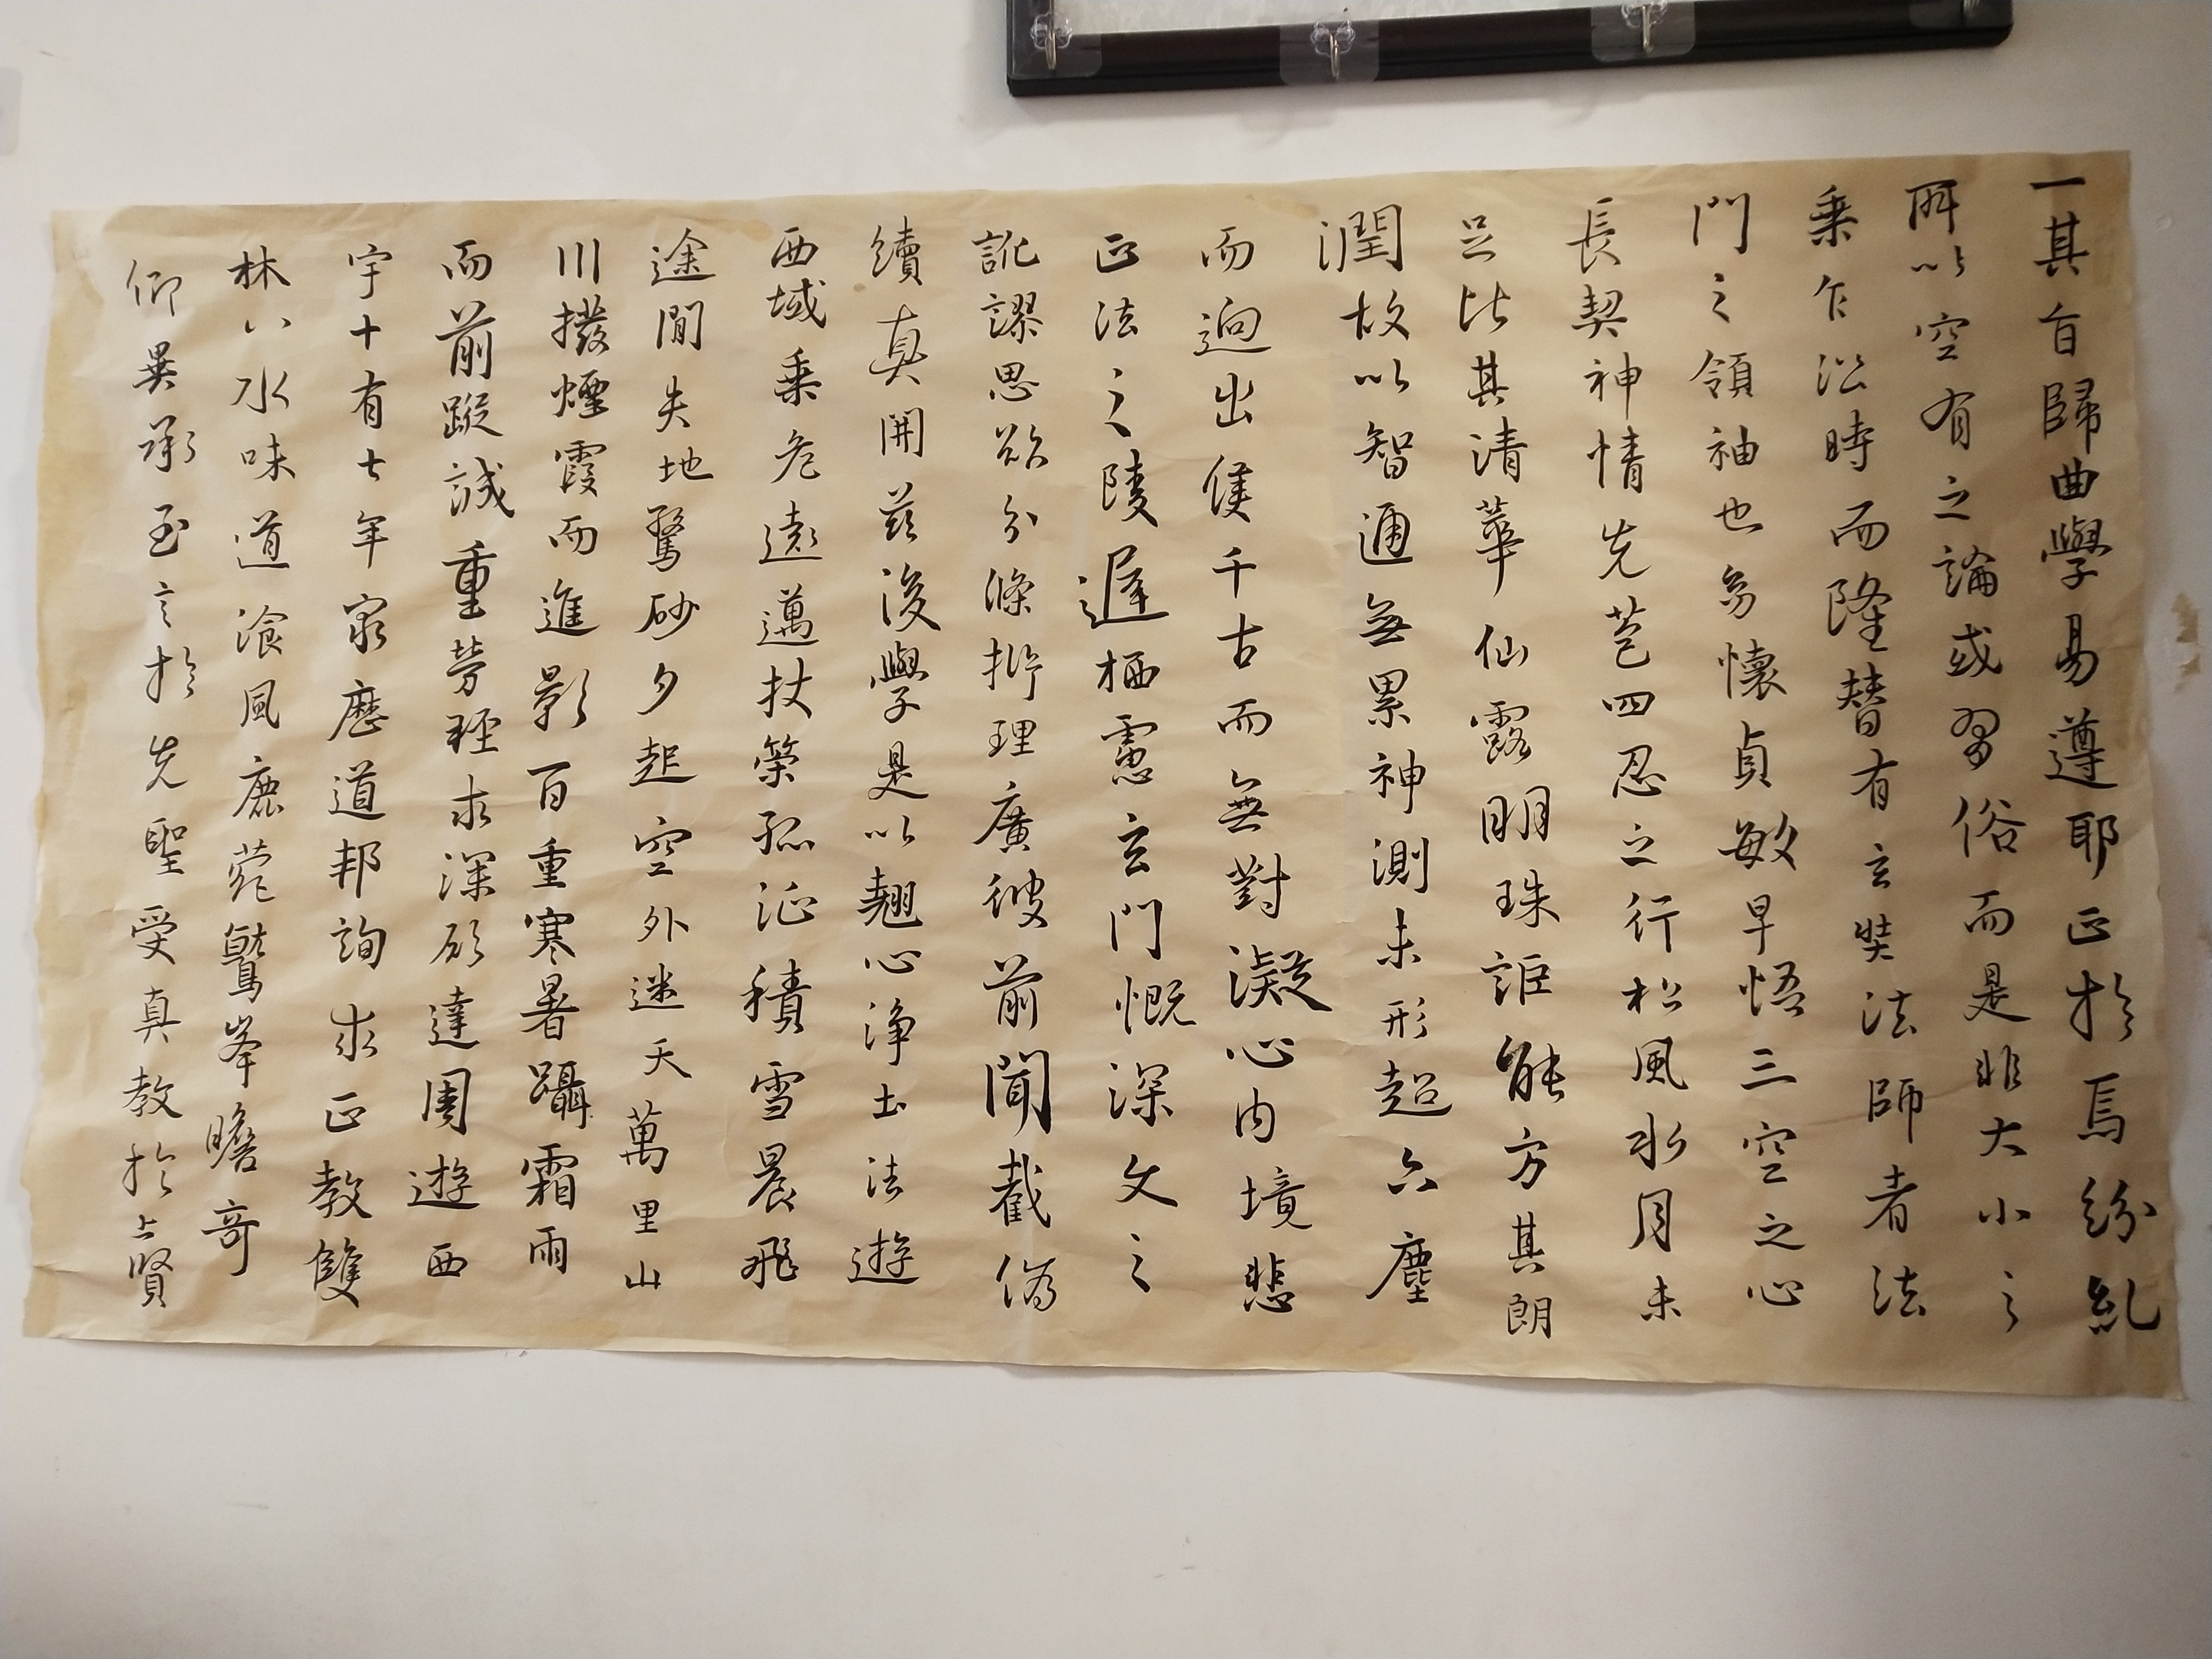 一其旨歸曲學易遵耶正於焉紛糺
所以空有之論或習俗而是非大小之
乗乍沿時而隆替有玄奘法師者法
門之領袖也㓜懷貞敏早悟三空之心
長契神情先苞四忍之行松風水月未
足比其清華仙露明珠詎能方其朗
潤故以智通無累神測未形超六塵
而迥出隻千古而無對凝心内境悲
正法之陵遲栖慮玄門慨深文之
訛謬思欲分條析理廣彼前聞截偽
續真開茲後學是以翹心淨土法遊
西域乗危遠邁杖策孤征積雪晨飛
途閒失地驚砂夕起空外迷天萬里山
川撥煙霞而進影百重寒暑躡霜雨
而前蹤誠重勞輕求深願達周遊西
宇十有七年窮歷道邦詢求正教雙
林八水味道飡風鹿菀鷲峯瞻奇
仰異承至言於先聖受真教於上賢